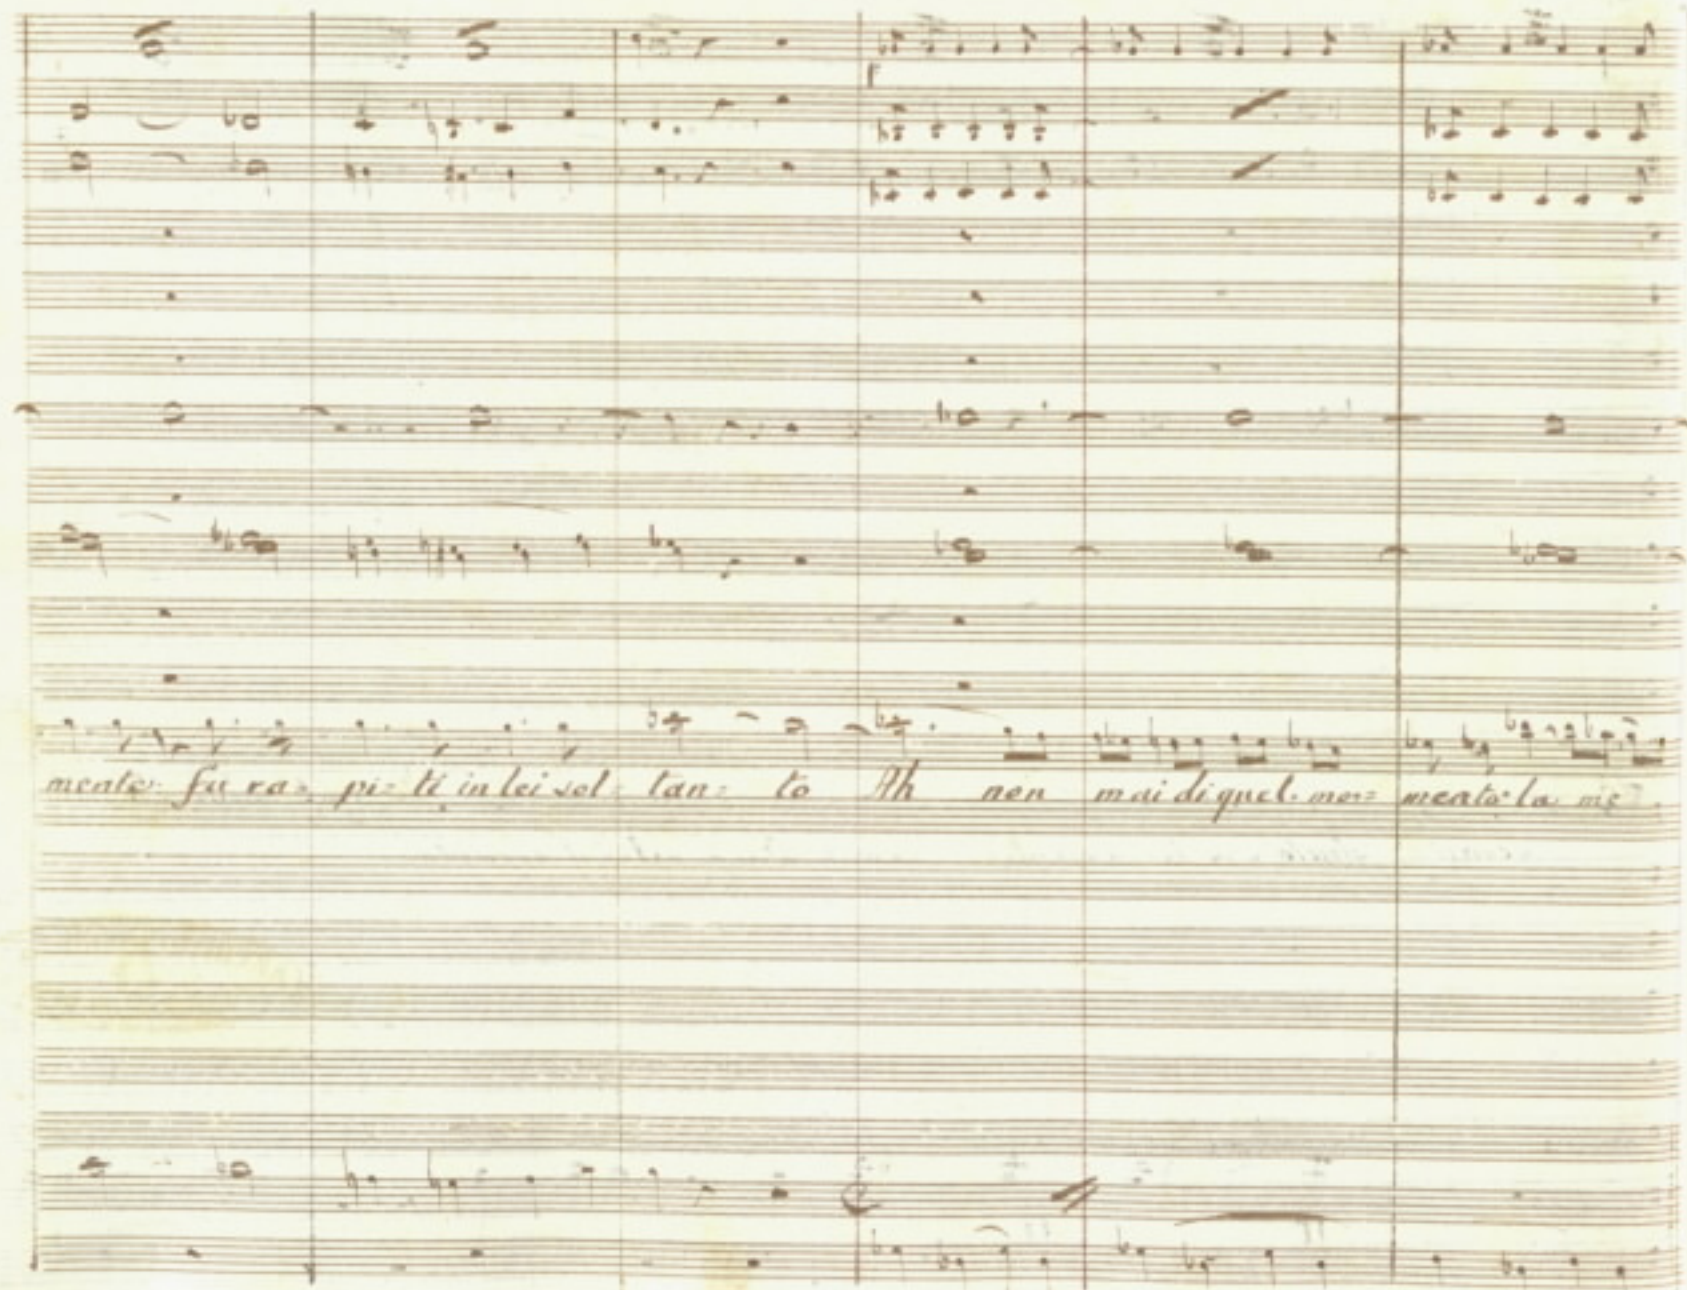 mente fu ra= pi= ti in lei sol tan= to Ah non mai di quel mo= mento la me